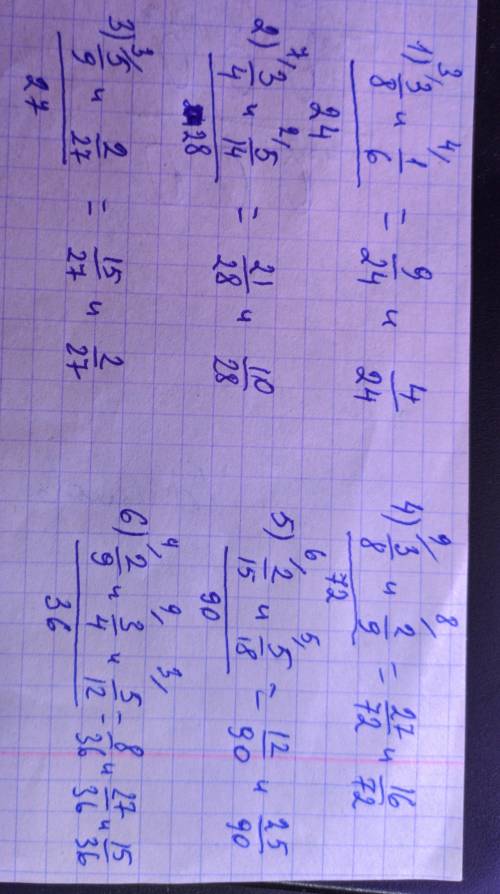 1) 3/ 3/8 и 4/ 1/6 = 9/24 и 4/24
24
2) 7/ 3/4 и 2/ 5/14 = 21/28 и 10/28
28
3) 3/ 5/9 и 2/27 = 15/27 и 2/27
27
4) 9/ 3/8 и 8/ 2/9 = 27/72 и 16/72
72
5) 6/ 2/15 и 5/ 5/18 = 12/90 и 25/90
90
6) 4/ 2/9 и 9/ 3/4 и 3/ 5/12 = 8/36 и 27/36 и 15/36
36